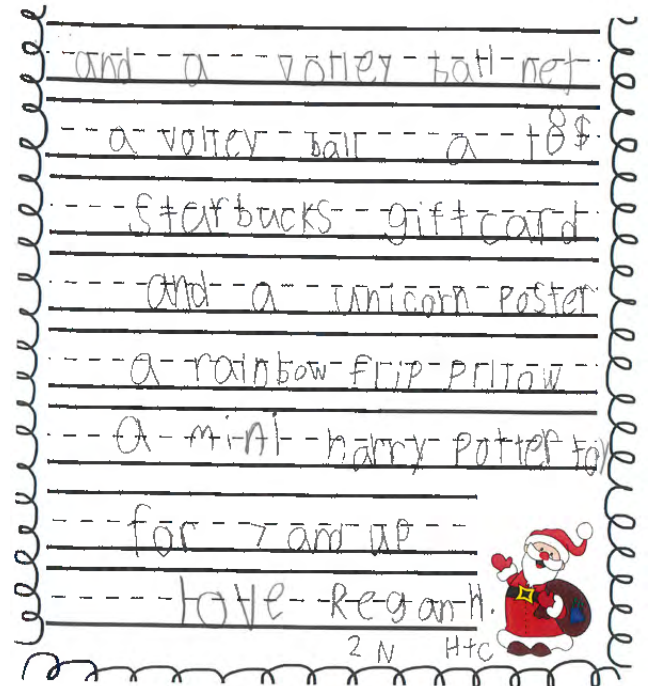 and a volley ball net
a volley ball a 18$
starbucks giftcard
and a unicorn poster
a rainbow flip pillow
a mini harry potter toy
for 7 and up
love Regan H.
2 N H+C